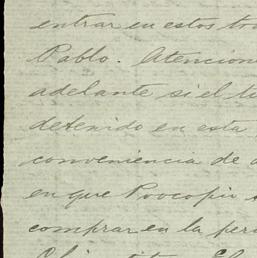 entrar en estos
Pablo. Atencion
adelante si el
detenido en esta
conveniencia de
en que Procopio
comprar en la